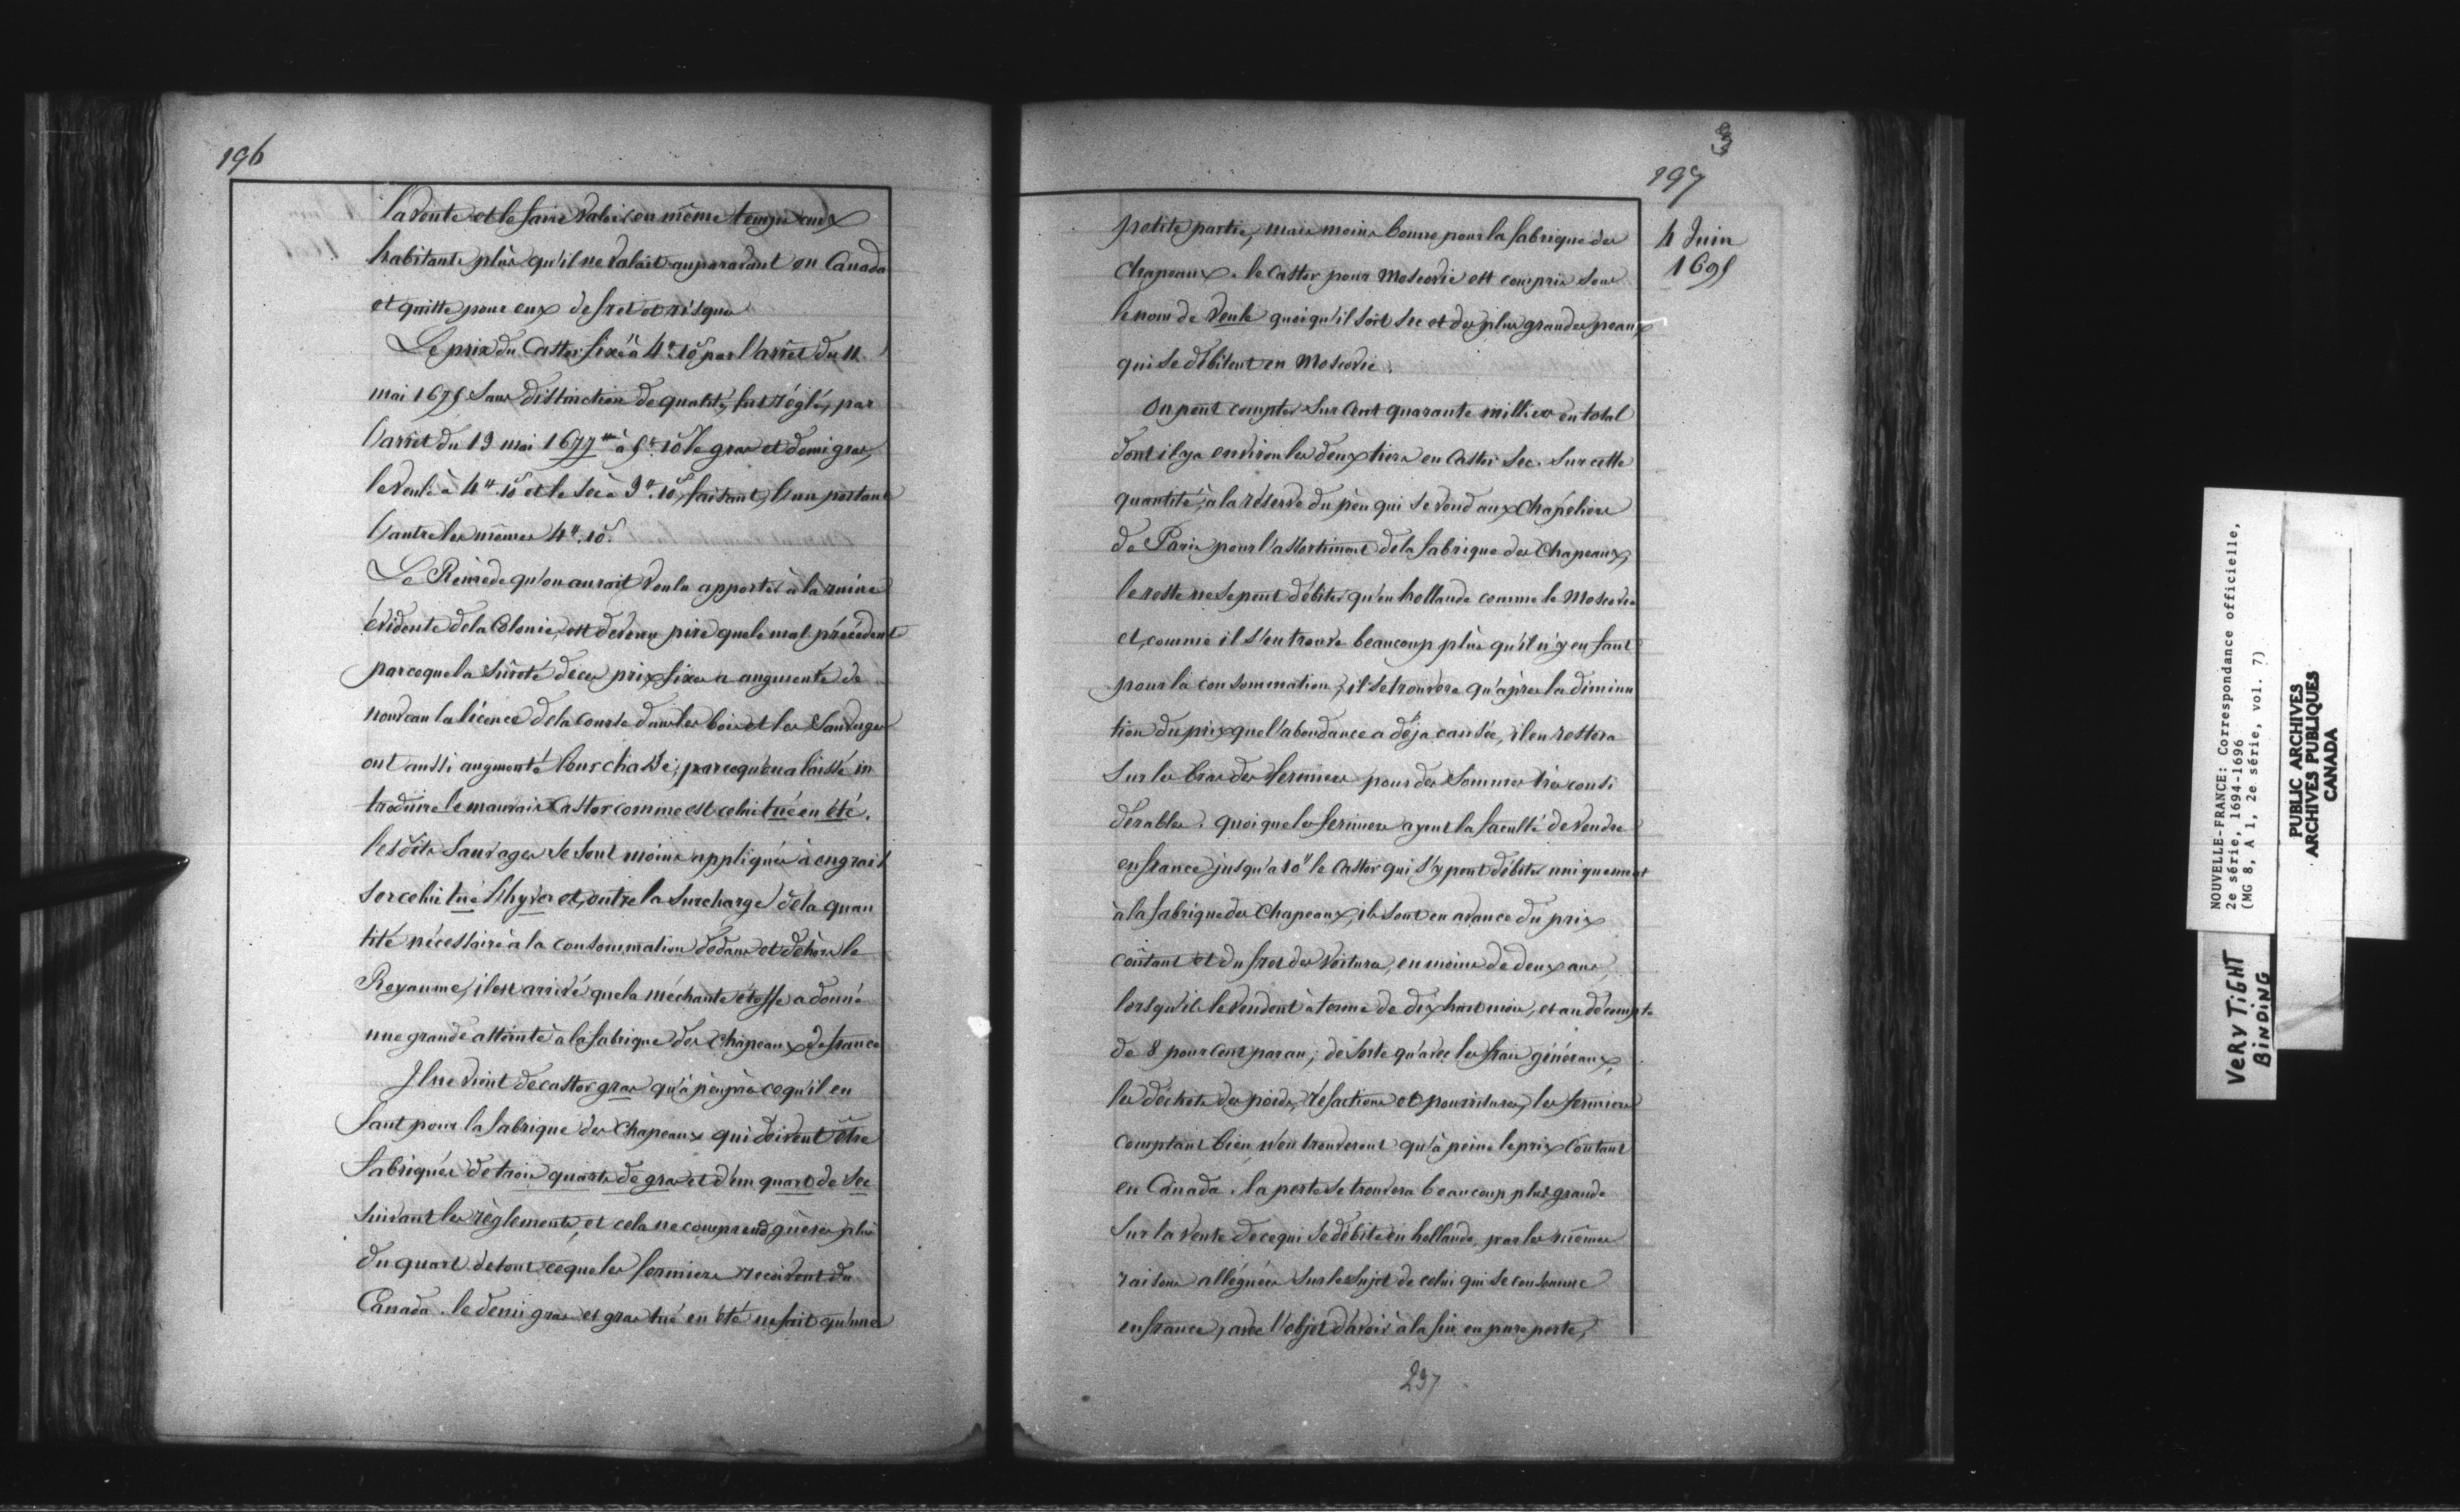 196
la vente et le faire valoir en même temps aux
habitants plus qu'il ne valait auparavant en Canada
et quitte pour eux de fret et risque
Le prix du Castor fixé à 4# 10s par l'arrêt du 11
mai 1675 Sans distinction de qualité, fut réglé, par
l'arrêt du 19 mai 1677 à 5# 10s le gras et demi gras,
le veule à 4# 10s et le sec à 3# 10s, faisant, l'un portant
l'autre les mêmes 4# 10s.
Le Remède qu'on aurait voulu apporter à la ruine
évidente de la Colonie, est devenu pire que le mal précédent
parceque la sûreté de ces prix fixes a augmenté de
nouveau la licence de la course dans les bois et les Sauvages
ont aussi augmenté leur chasse, parcequ'on a laissé in
troduire le mauvais Castor comme est celui tué en été.
lesdits Sauvages se sont moins appliqués à engrais
ser celui tué l'hyver et, outre la Surcharge de la quan
tité nécessaire à la consommation dedans et dehors le
Royaume, il est arrivé que la méchante étoffe a donné
une grande atteinte à la fabrique des Chapeaux de france
Il ne vient de castor gras qu'à peu près ce qu'il en
faut pour la fabrique des Chapeaux qui doivent être
fabriqués de trois quarts de gras et d'un quart de sec
suivant les règlements, et cela ne comprend guères plus
du quart de tout ce que les fermiers reçoivent du
Canada. le demi gras et gras tué en été ne fait qu'une
3
197
4 Juin
1695
petite partie, mais moins bonne pour la fabrique des
Chapeaux. le Castor pour Moscovie est compris sous
le nom de Veule quoiqu'il soit sec et des plus grandes peaux
qui se débitent en Moscovie.
On peut compter sur Cent quarante milliers en total
dont il y a environ les deux tiers en Castor Sec. Sur cette
quantité, à la réserve du peu qui se vend aux Chapeliers
de Paris pour l'assortiment de la fabrique des Chapeaux,
le reste ne se peut débiter qu'en hollande comme le Moscovie
et, comme il s'en trouve beaucoup plus qu'il n'y en faut
pour la consommation, il se trouvera qu'après la diminu
tion du prix que l'abondance a déja causée, il en restera
sur les bras des fermiers pour des Sommes très consi
dérables. quoique les fermiers ayent la faculté de vendre
en france jusqu'à 10# le Castor qui s'y peut débiter uniquement
à la fabrique des Chapeaux, ils sont en avance du prix
coûtant et du fret des Voitures, en moins de deux ans,
lorsqu'ils le vendent à terme de dix huit mois, et au décompte
de 8 pour Cent par an; de sorte qu'avec les frais généraux,
les déchets des poids, réfactions et pourritures, les fermiers
comptant bien, n'en trouveront qu'à peine le prix Coûtant
en Canada. la perte se trouvera beaucoup plus grande
sur la vente de ce qui se débite en hollande, par les mêmes
raisons alléguées sur le sujet de celui qui se consomme
en france, avec l'objet d'avoir à la fin en pure perte,
237
NOUVELLE-FRANCE: Correspondance officielle,
2e série, 1694-1696
(MG 8, A 1, 2e série, vol. 7)
PUBLIC ARCHIVES
ARCHIVES PUBLIQUES
CANADA
VERY TIGHT
BINDING